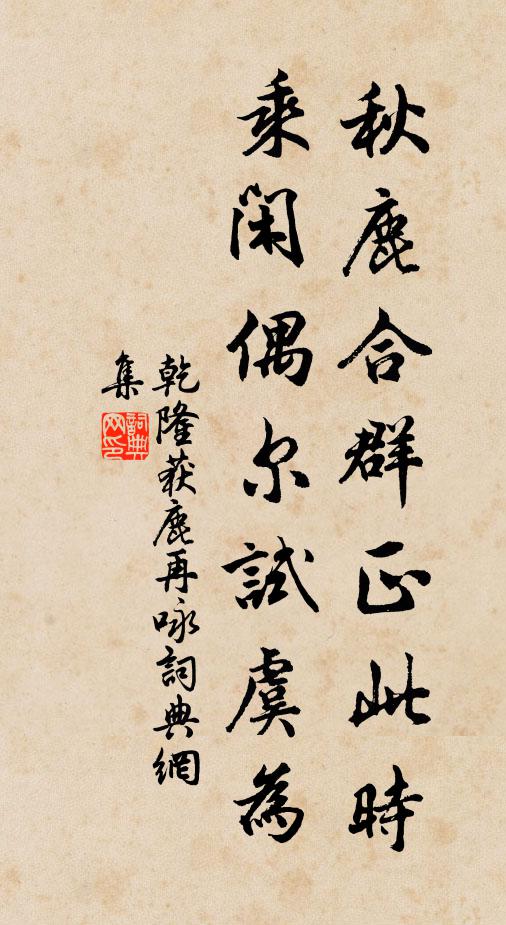 秋鹿合群正此時
乘閑偶尔試虞為
乾隆获鹿再咏詞典網
集
詞典网印